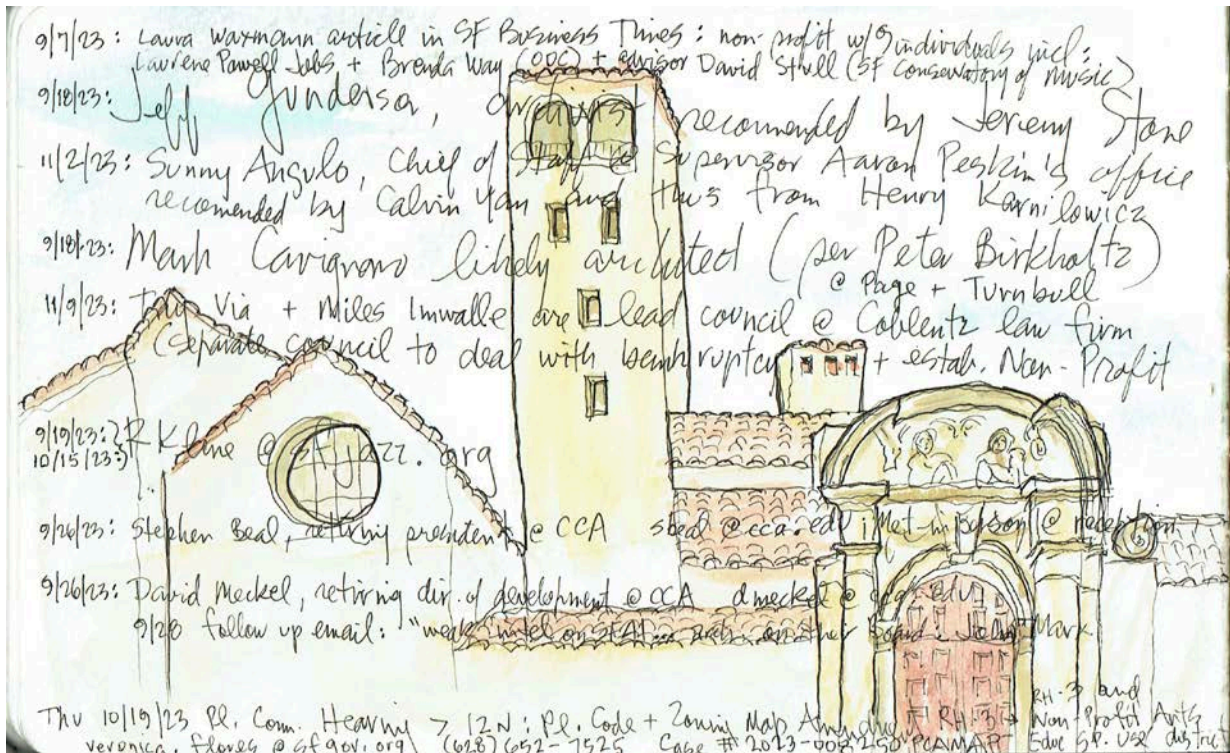 9/7/23: Laura Waxmann article in SF Business Times: non-profit w/ 5 individuals incl:
Laurene Powell Jobs + Brenda Way (ODC) + advisor David Stull (SF Conservatory of Music)
9/18/23: Jeff Gunderson, archivist recommended by Jeremy Stone
11/2/23: Sunny Angulo, Chief of Staff @ Supervisor Aaron Peskin's office
recomended by Calvin Yan and thus from Henry Karnilowicz
9/18/23: Mark Cavignero likely architect (per Peter Birkholtz)
@ Page + Turnbull
11/9/23: Via + Miles Imwalle are lead council @ Coblentz law firm
(separate council to deal with bankruptcy + estab. Non-Profit
9/19/23:
10/15/23: RKline @ sfjazz.org
9/26/23: Stephen Beal, retiring president @ CCA sbeal@cca.edu; Met in person @ reception
9/26/23: David Meckel, retiring dir. of development @ CCA dmeckel@cca.edu
9/28 follow up email: "weak intel on SFAI... on their board: John Marx
Thu 10/19/23 Pl. Com. Hearing > 12N: Pl. Code + Zoning Map RH-3 RH-3 and
Non-Profit Arts
veronica.flores@sfgov.org (628) 652-7525 Case # PCAMAP Educ SP. USE district